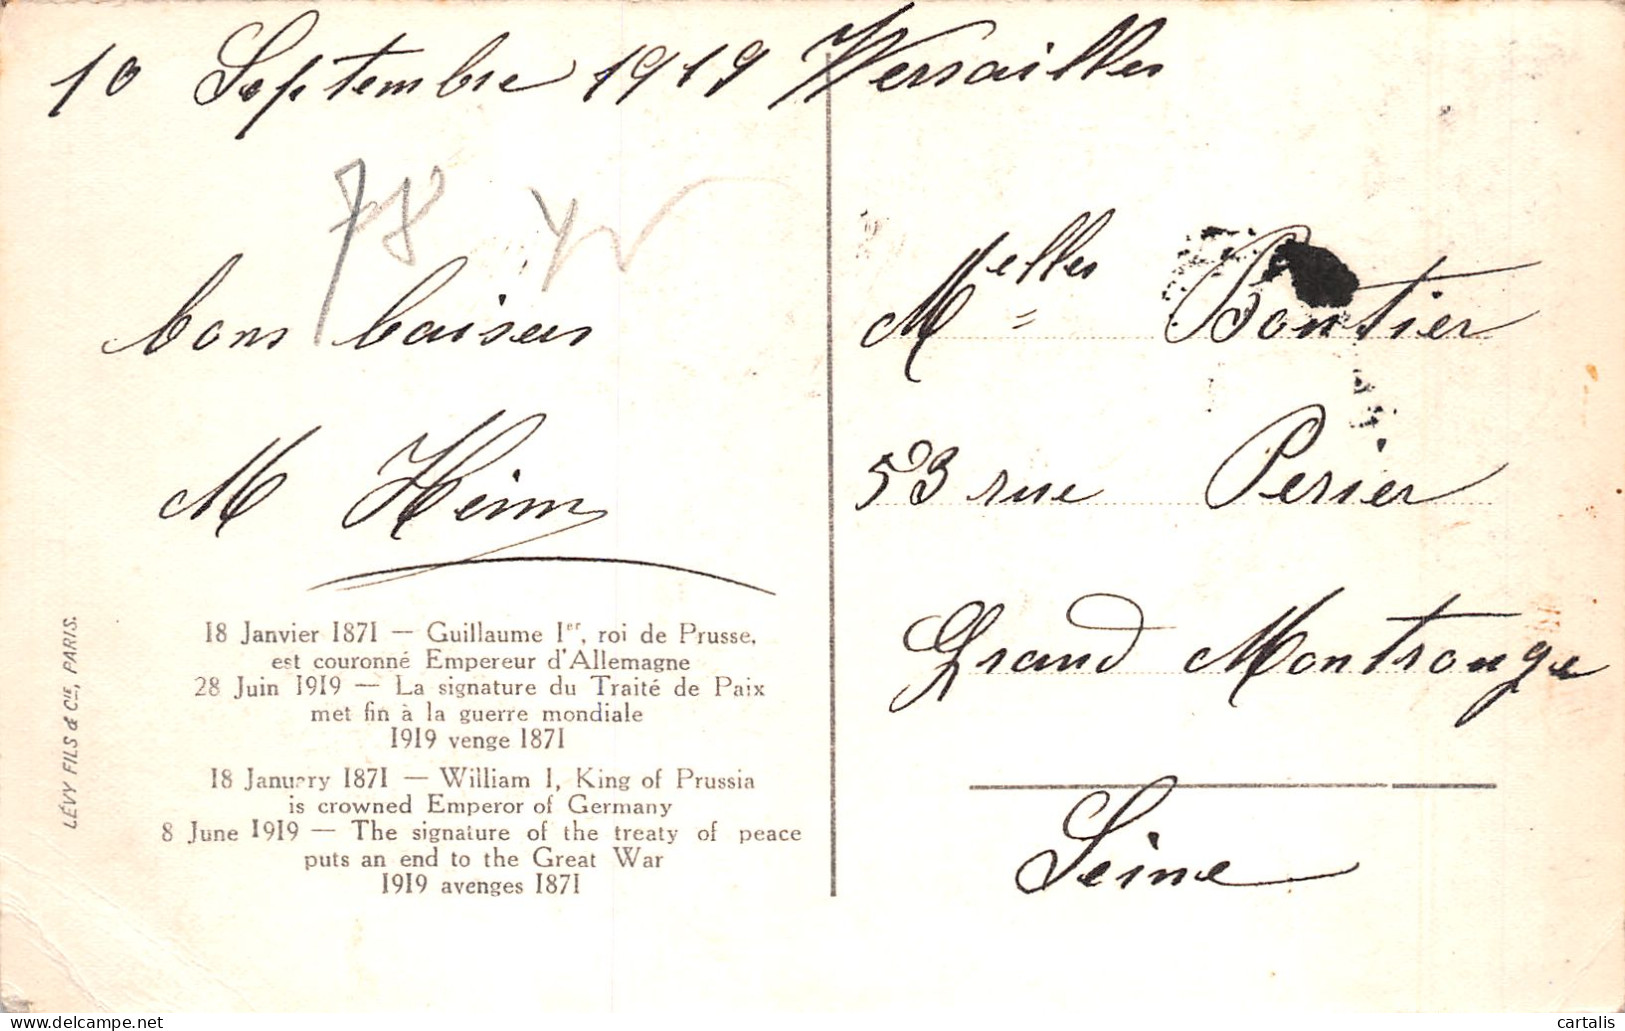 10 Septembre 1919 Versailles
78 yv
bons baisers
M Heim
18 Janvier 1871 — Guillaume Ier, roi de Prusse,
est couronné Empereur d'Allemagne
28 Juin 1919 — La signature du Traité de Paix
met fin à la guerre mondiale
1919 venge 1871
18 January 1871 — William I, King of Prussia
is crowned Emperor of Germany
8 June 1919 — The signature of the treaty of peace
puts an end to the Great War
1919 avenges 1871
LÉVY FILS & Cie, PARIS.
Melles Bontier
53 rue Perier
Grand Montrouge
Seine
cartalis